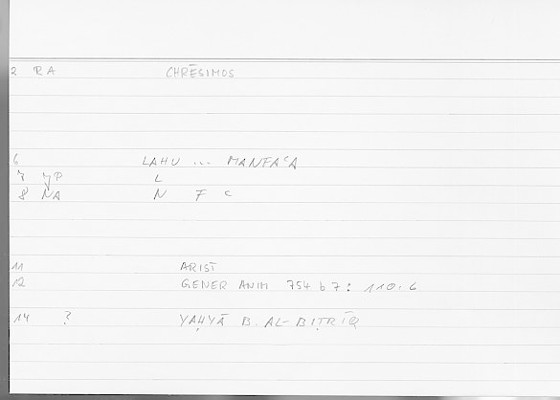 2 RA CHRĒSIMOS
6 LAHU ... MANFAʿA
7 YP L
8 NA N F C
11 ARIST
12 GENER ANIM 754 b 7 : 110.6
14 ? YAḤYĀ B. AL-BIṬRĪQ